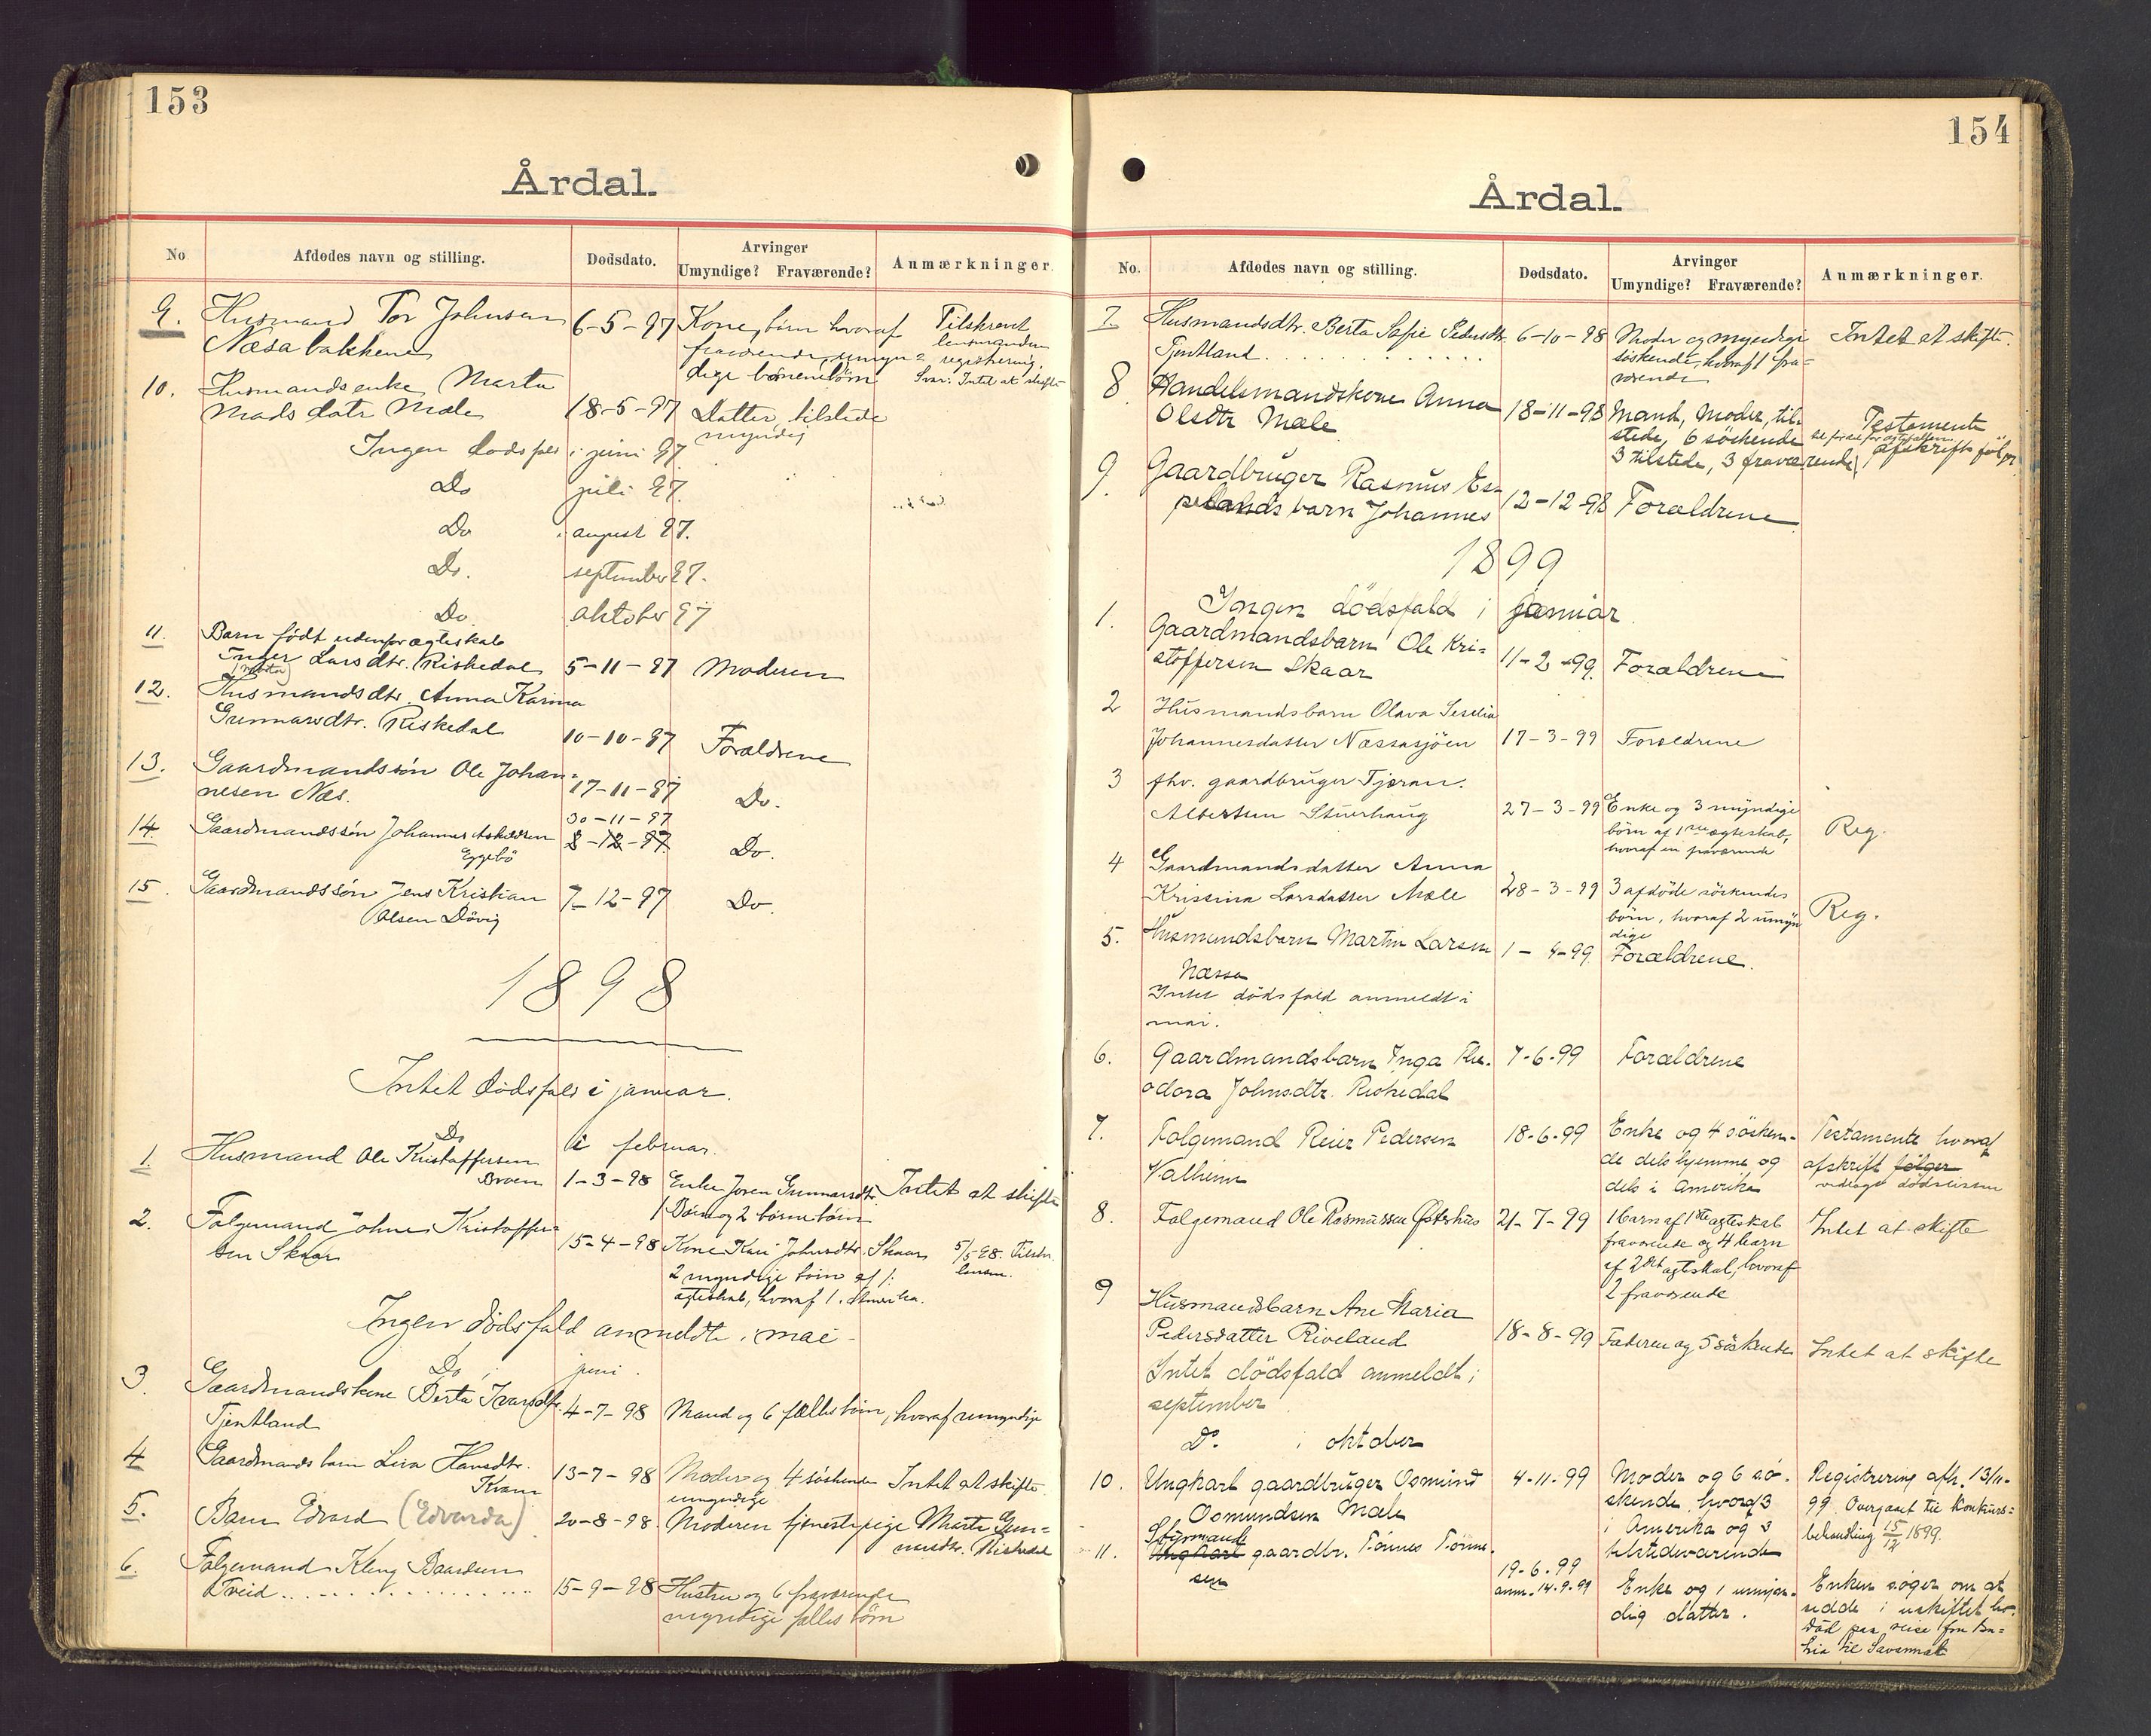 153
Årdal.
No
Afdødes navn og stilling.
Dødsdato.
Arvinger
Umyndige? Fraværende?
Anmærkninger.
9. Husmand Tor Johnsen 6-5-97 Kone, børn hvoraf Tilskrevet
Næsabakken fraværende, umyn= lensmanden
dige børnebørn registrering.
Svar: Intet at skifte
10. Husmandsenke Marta
Mads datr Mæle 18-5-97 Datter, tilstede
myndig
Ingen dødsfald i juni 97
Do juli 97.
Do august 97.
Do. september 97.
Do. oktober 97
11. Barn født udenfor ægteskab
Inger Larsdtr. Riskedal 5-11-97 Moderen
12. Husmandsdtr. Anna Karina
Gunnarsdtr. Riskedal 10-10-97 Forældrene
13. Gaardmandssøn Ole Johan=
nesen Næs. 17-11-97 Do.
30-11-97
14. Gaardmandssøn Johannes Askildsen 8-12-97 Do.
Eggebö
15. Gaardmandssøn Jens Kristian 7-12-97 Do.
Olsen Døvig
1898
Intet dødsfald i januar.
Do i februar.
1. Husmand Ole Kristoffersen
1-3-98 Enke Joren Gunnarsdtr. Intet at skifte
1 Datter og 2 børnebørn
2. Folgemand Johnes Kristoffer=
sen Skaar 15-4-98 Kone Kari Johnsdtr. Skaar 5/5 98. Tilskr.
2 myndige børn af 1. lensm.
ægteskab, hvoraf 1 i Amerika.
Ingen dødsfald anmeldt i mai
Do juni.
3. Gaardmandskone Berta Ivarsdtr. 4-7-98 Mand og 6 fællesbørn, hvoraf umyndige
Tjentland
4. Gaardmandsbarn Lisa Hansdtr.
Kvam 13-7-98 Moder og 4 søskende Intet at skifte
umyndige
5. Barn Edvard (Edvarda) 20-8-98. Moderen tjenestepige Marta Gun=
narsdtr. Riskedal
6. Folgemand Kleng Baardsen
Tveid.. 15-9-98 Hustru og 6 fraværende
myndige fælles børn
154
Årdal.
No.
Afdødes navn og stilling.
Dødsdato.
Arvinger
Umyndige? Fraværende?
Anmærkninger.
7. Husmandsdtr. Berta Sofie Pedersdtr. 6-10-98 Moder og myndige Intet at skifte.
Tjentland. søskende, hvoraf 1 fra=
værende
8. Handelsmandskone Anna 18-11-98 Mand, Moder, til= Testamente
Olsdtr Mæle stede, 6 söskende
3 tilstede, 3 fraværende afskrift følger
9. Gaardbruger Rasmus Es=
pelands barn Johannes 12-12-98 Forældrene
1899
Ingen dødsfald i januar
1. Gaardmandsbarn Ole Kri=
stoffersen Skaar 11-2-99. Forældrene
2 Husmandsbarn Olava Serelia
Johannesdatter Næssasjöen 17-3-99 Forældrene
3 fhv. gaardbruger Tjeran.
Albertsen Stuerhaug 27-3-99 Enke og 3 myndige Reg.
børn af 1ste ægteskab,
hvoraf en fraværende
4 Gaardmandsdatter Anna
Kristina Larsdatter Mæle 28-3-99 3 afdöde söskendes Reg.
børn, hvoraf 2 umyn
dige
5. Husmandsbarn Martin Larsen 1-4-99. Forældrene.
Næssa
Intet dödsfald anmeldt i
mai.
6. Gaardmandsbarn Inga The= 7-6-99 Forældrene
odora Johnsdtr. Riskedal
7. Folgemand Reier Pedersen 18-6-99 Enke og 4 søsken= Testamente hvoraf
Valheim de dels hjemme og afskrift følger
dels i Amerika vedlagt dødslisten
8. Folgemand Ole Rasmussen Østerhus 21-7-99 1 barn af 1ste ægteskab Intet at skifte
fraværende og 4 barn
af 2det ægteskab, hvoraf
2 fraværende
9 Husmandsbarn Ane Maria
Pedersdatter Riveland 18-8-99 Faderen og 5 söskende Intet at skifte
Intet dödsfald anmeldt i
september
Do. i oktober
10. Ungkarl gaardbruger Osmund 4-11-99 Moder og 6 sø= Registrering afh. 13/11-
Osmundsen Mæle skende hvoraf 3 99. Overgaaet til konkurs=
i Amerika og 3 behandling 15/12 1899.
tilstedeværende
11. Styrmand
Ungkarl gaardbr. Tönnes Tönne= 19-6.99
sen anm. 14.9.99 Enke og 1 umyn= Enken søger om at
dig datter. sidde i uskiftet bo.
Död paa reise fra Ba=
hia til Savannah